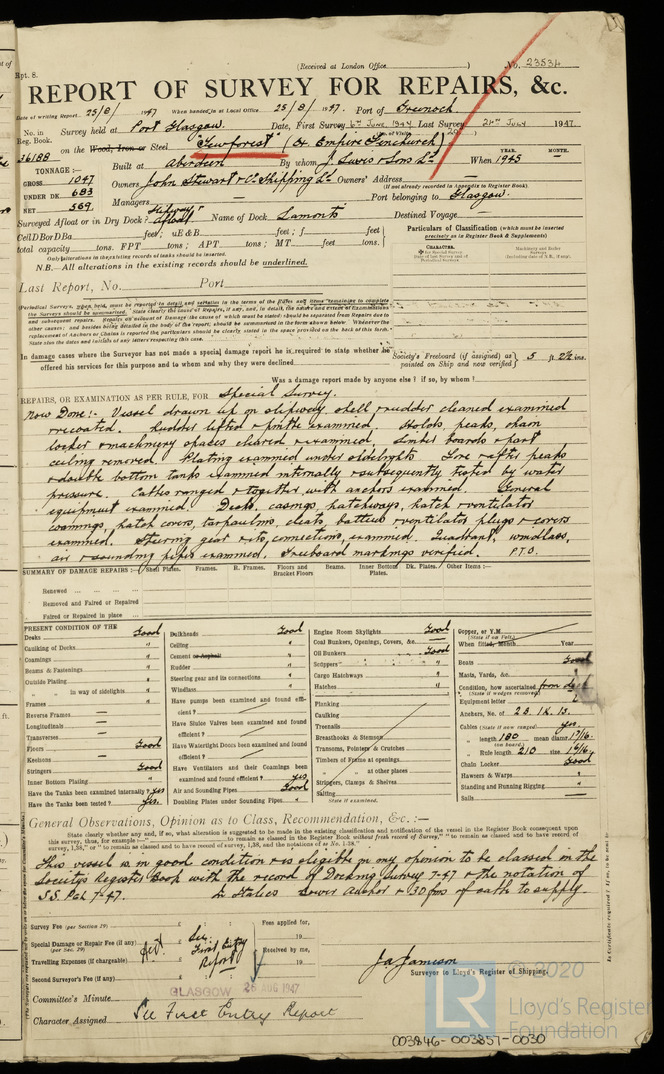 Rpt. 8.
(Received at London Office )
No. 23534
REPORT OF SURVEY FOR REPAIRS, &c.
Date of writing Report 25/8/ 1947 When handed in at Local Office 25/8/ 1947. Port of Greenock
No. in Reg. Book.
Survey held at Port Glasgow. Date, First Survey 6th June, 1947 Last Survey 21st July 1947
36188 on the Wood, Iron or Steel "Yewforest" (ex Empire Fenchurch)
TONNAGE:—
GROSS 1047
UNDER DK. 683
NET 569
Built at Aberdeen By whom J. Lewis & Sons Ld. When 1945 YEAR. MONTH.
Owners John Stewart & Co Shipping Ld Owners' Address
(If not already recorded in Appendix to Register Book).
Managers — Port belonging to Glasgow.
Surveyed Afloat or in Dry Dock? Slipway & Afloat Name of Dock Lamonts Destined Voyage —
CellDBorDBa feet; uE&B feet; f feet
total capacity tons. FPT tons; APT tons; MT feet tons.
Only alterations in the existing records of tanks should be inserted.
N.B.—All alterations in the existing records should be underlined.
Particulars of Classification (which must be inserted
precisely as in Register Book & Supplements)
CHARACTER.
Last Report, No. Port
In damage cases where the Surveyor has not made a special damage report he is required to state whether he
offered his services for this purpose and to whom and why they were declined
Society's Freeboard (if assigned) as painted on Ship and now verified 5 ft 2½ ins.
Was a damage report made by anyone else? if so, by whom?
REPAIRS, OR EXAMINATION AS PER RULE, FOR Special Survey.
Now Done:- Vessel drawn up on slipway shell & rudder cleaned examined
& recoated. Rudder lifted & pintles examined. Holds, peaks, chain
locker & machinery spaces cleared & examined, limber boards & part
ceiling removed. Plating examined under sidelights. Fore & after peaks
& double bottom tanks examined internally & subsequently tested by water
pressure. Cables ranged & together with anchors examined. General
equipment examined. Decks, casings, hatchways, hatch & ventilator
coamings, hatch covers, tarpaulins, cleats, battens & ventilator plugs & covers
examined. Steering gear & its connections, examined. Quadrant, windlass,
air & sounding pipes examined. Freeboard markings verified. P.T.O.
SUMMARY OF DAMAGE REPAIRS:— Shell Plates. Frames. R. Frames. Floors and Bracket Floors Beams. Inner Bottom Plates. Dk. Plates. Other Items:—
Renewed
Removed and Faired or Repaired
Faired or Repaired in place
PRESENT CONDITION OF THE
Decks Good
Caulking of Decks "
Coamings "
Beams & Fastenings "
Outside Plating "
" " in way of sidelights "
Frames "
Reverse Frames —
Longitudinals —
Transverses —
Floors Good
Keelsons —
Stringers Good
Inner Bottom Plating "
Have the Tanks been examined internally? Yes
Have the Tanks been tested? Yes.
Bulkheads Good
Ceiling "
Cement or Asphalt "
Rudder "
Steering gear and its connections "
Windlass "
Have pumps been examined and found efficient?
Have Sluice Valves been examined and found efficient?
Have Watertight Doors been examined and found efficient?
Have Ventilators and their Coamings been examined and found efficient? Yes
Air and Sounding Pipes Good
Doubling Plates under Sounding Pipes "
Engine Room Skylights Good
Coal Bunkers, Openings, Covers, &c. —
Oil Bunkers Good
Scuppers "
Cargo Hatchways "
Hatches "
Planking
Caulking
Treenails
Breasthooks & Stemson
Transoms, Pointers & Crutches
Timbers of Frame at openings
" " at other places
Stringers, Clamps & Shelves
Salting
State if examined.
Copper, or Y.M.
(State if on Felt.)
When fitted, Month Year
Boats Good
Masts, Yards, &c. "
Condition, how ascertained from deck
(State if wedges removed)
Equipment letter
Anchors, No. of 2B. 1K. 1S.
Cables (State if now ranged) Yes.
" length 180 mean diamr 1 9/16.
(on board.)
" Rule length 210 size 1 9/16.
Chain Locker Good
Hawsers & Warps "
Standing and Running Rigging "
Sails —
General Observations, Opinion as to Class, Recommendation, &c. :—
State clearly whether any and, if so, what alteration is suggested to be made in the existing classification and notification of the vessel in the Register Book consequent upon
This vessel is in good condition & is eligible in my opinion to be classed in the
Society's Register Book with the record of Docking Survey 7-47 & the notation of
S.S. PGl. 7-47. In Italics Bower Anchor & 30 fms of cable to supply.
Survey Fee (per Section 29)
Special Damage or Repair Fee (if any)
(per Sec. 29)
Travelling Expenses (if chargeable)
Second Surveyor's Fee (if any)
See First Entry Report
Fees applied for, 19
Received by me, 19
J.A. Jamieson
Surveyor to Lloyd's Register of Shipping.
Committee's Minute GLASGOW 26 AUG 1947
Character Assigned See First Entry Report
© 2020
LR
Lloyd's Register
Foundation
003846-003857-0030